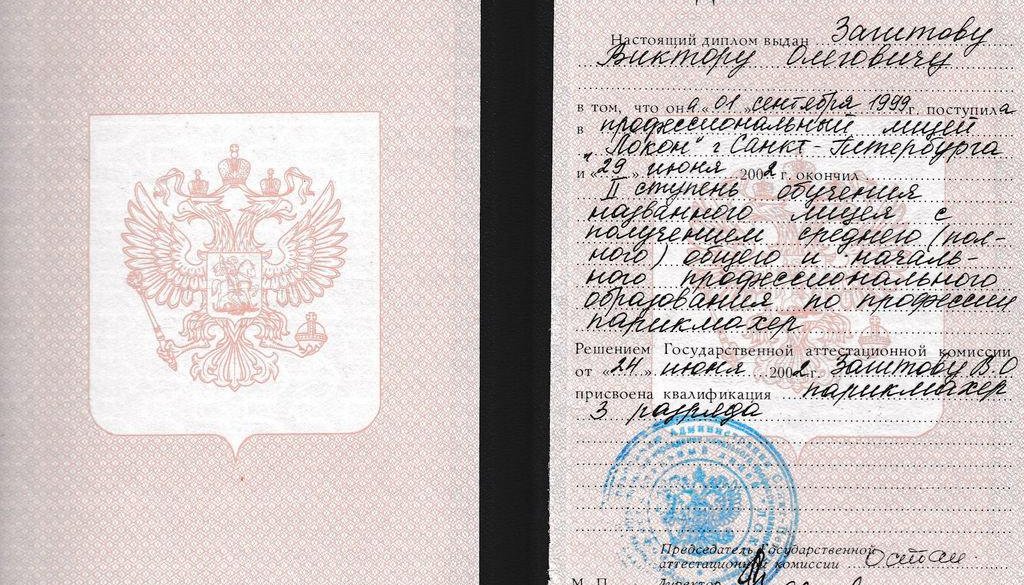 Настоящий диплом выдан Заштову
Виктору Олеговичу
в том, что она «01» сентября 1999 г. поступила
в профессиональный лицей
"Локон" г Санкт-Петербурга
и «29» июня 2002 г. окончил
II ступень обучения
названного лицея с
получением среднего (пол-
ного) общего и началь-
ного профессионального
образования по профессии
парикмахер
Решением Государственной аттестационной комиссии
от «24» июня 2002 г. Заштову В.О
присвоена квалификация парикмахер
3 разряда
Председатель Государственной
аттестационной комиссии
М. П. Директор